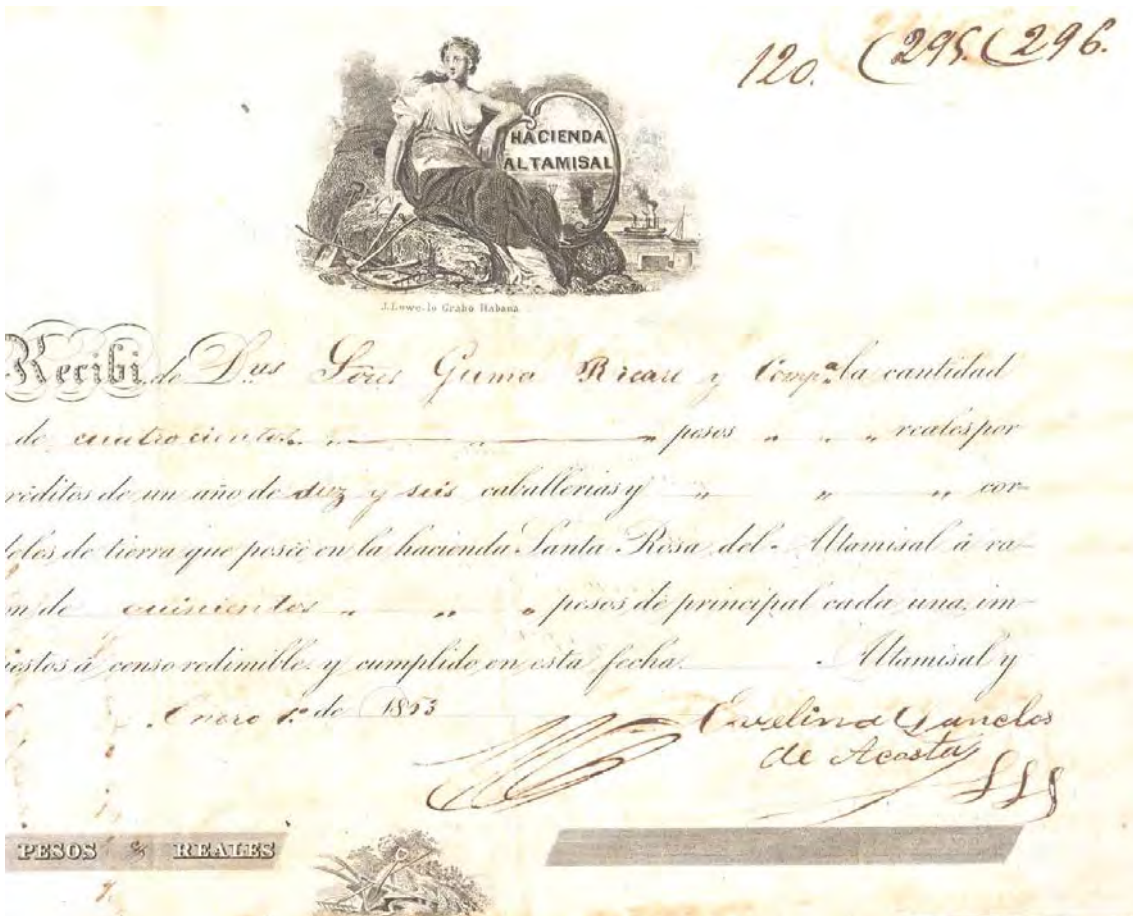 120. (295. (296.
HACIENDA
ALTAMISAL
J. Lowe lo Grabo Habana
Recibi de Dus Sōres Guma y Compª la cantidad
de cuatrocientos " " " pesos " " " reales por
réditos de un año de diez y seis caballerias y " " " cor-
deles de tierra que posee en la hacienda Santa Rosa del Altamisal á ra-
n de quinientos " " " pesos de principal cada una, im-
estos á censo redimible y cumplido en esta fecha. Altamisal y
Enero 1º de 1853
Evelina
de Acosta
PESOS REALES